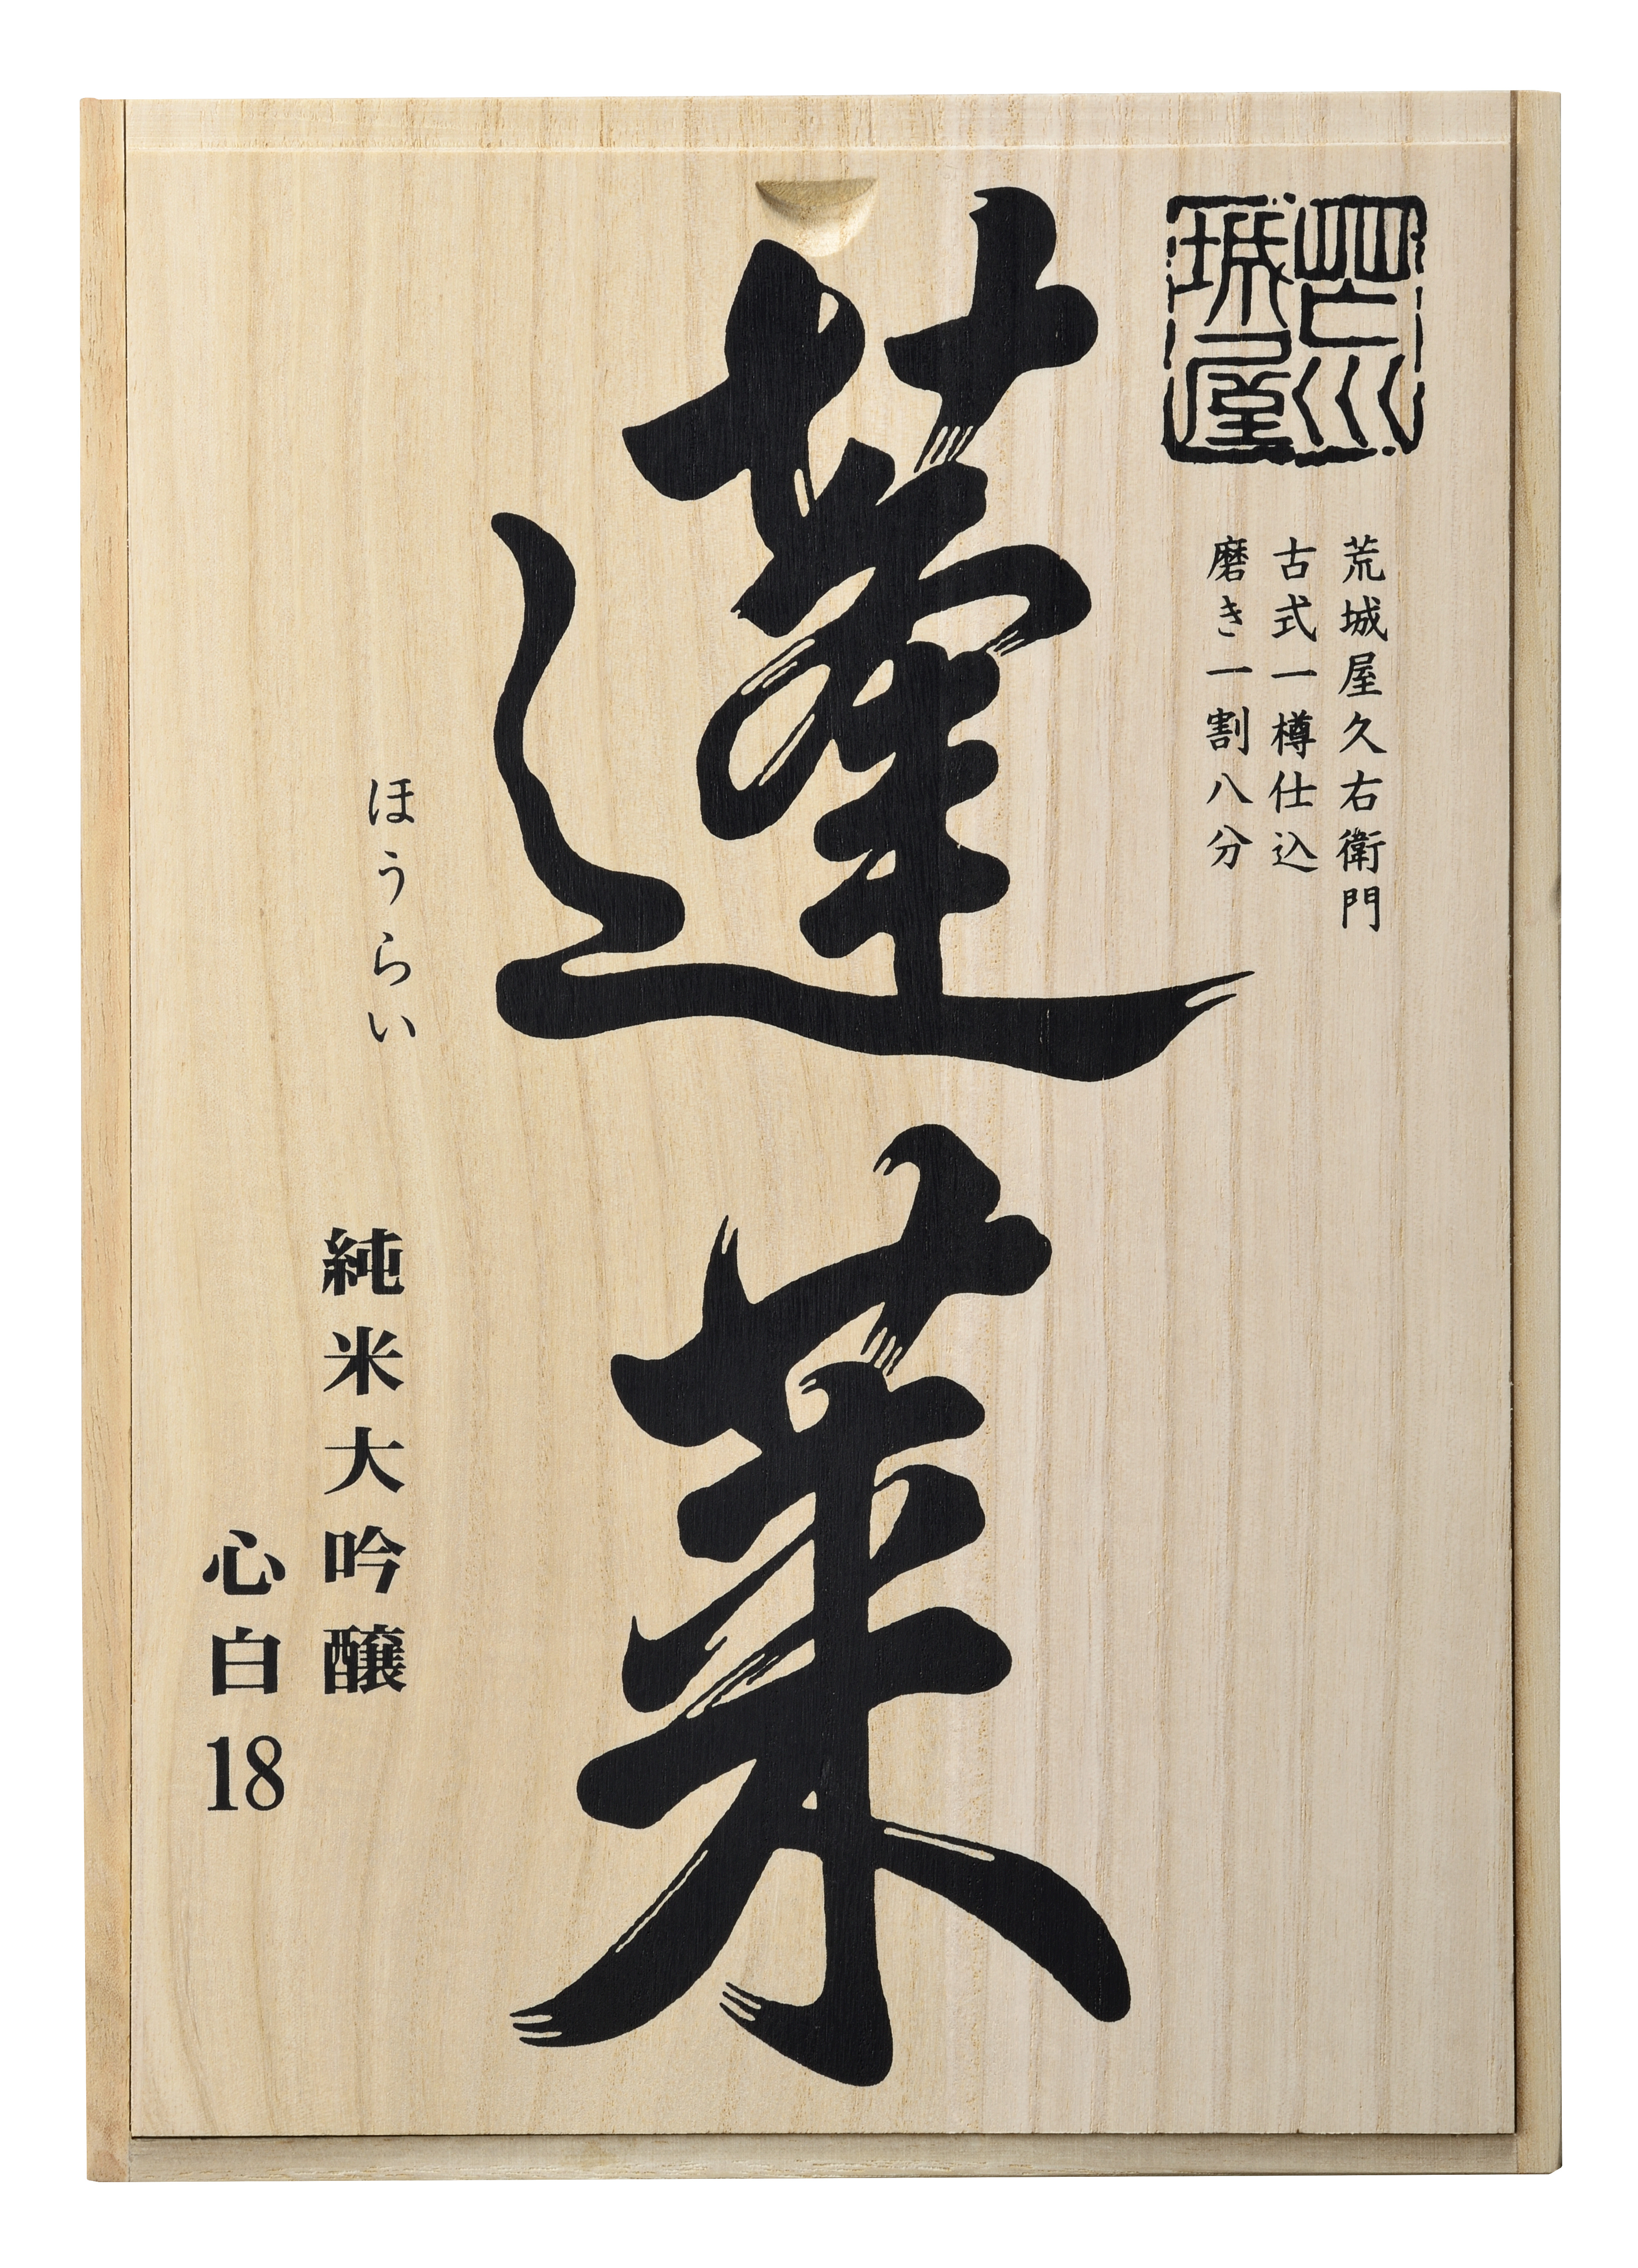 荒城屋
荒城屋久右衛門
古式一樽仕込
磨き一割八分
蓬莱
ほうらい
純米大吟醸
心白18